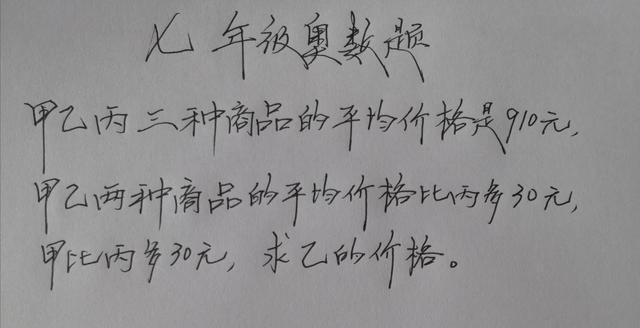 七年级奥数题
甲乙丙三种商品的平均价格是910元，
甲乙两种商品的平均价格比丙多30元，
甲比丙多30元，求乙的价格。